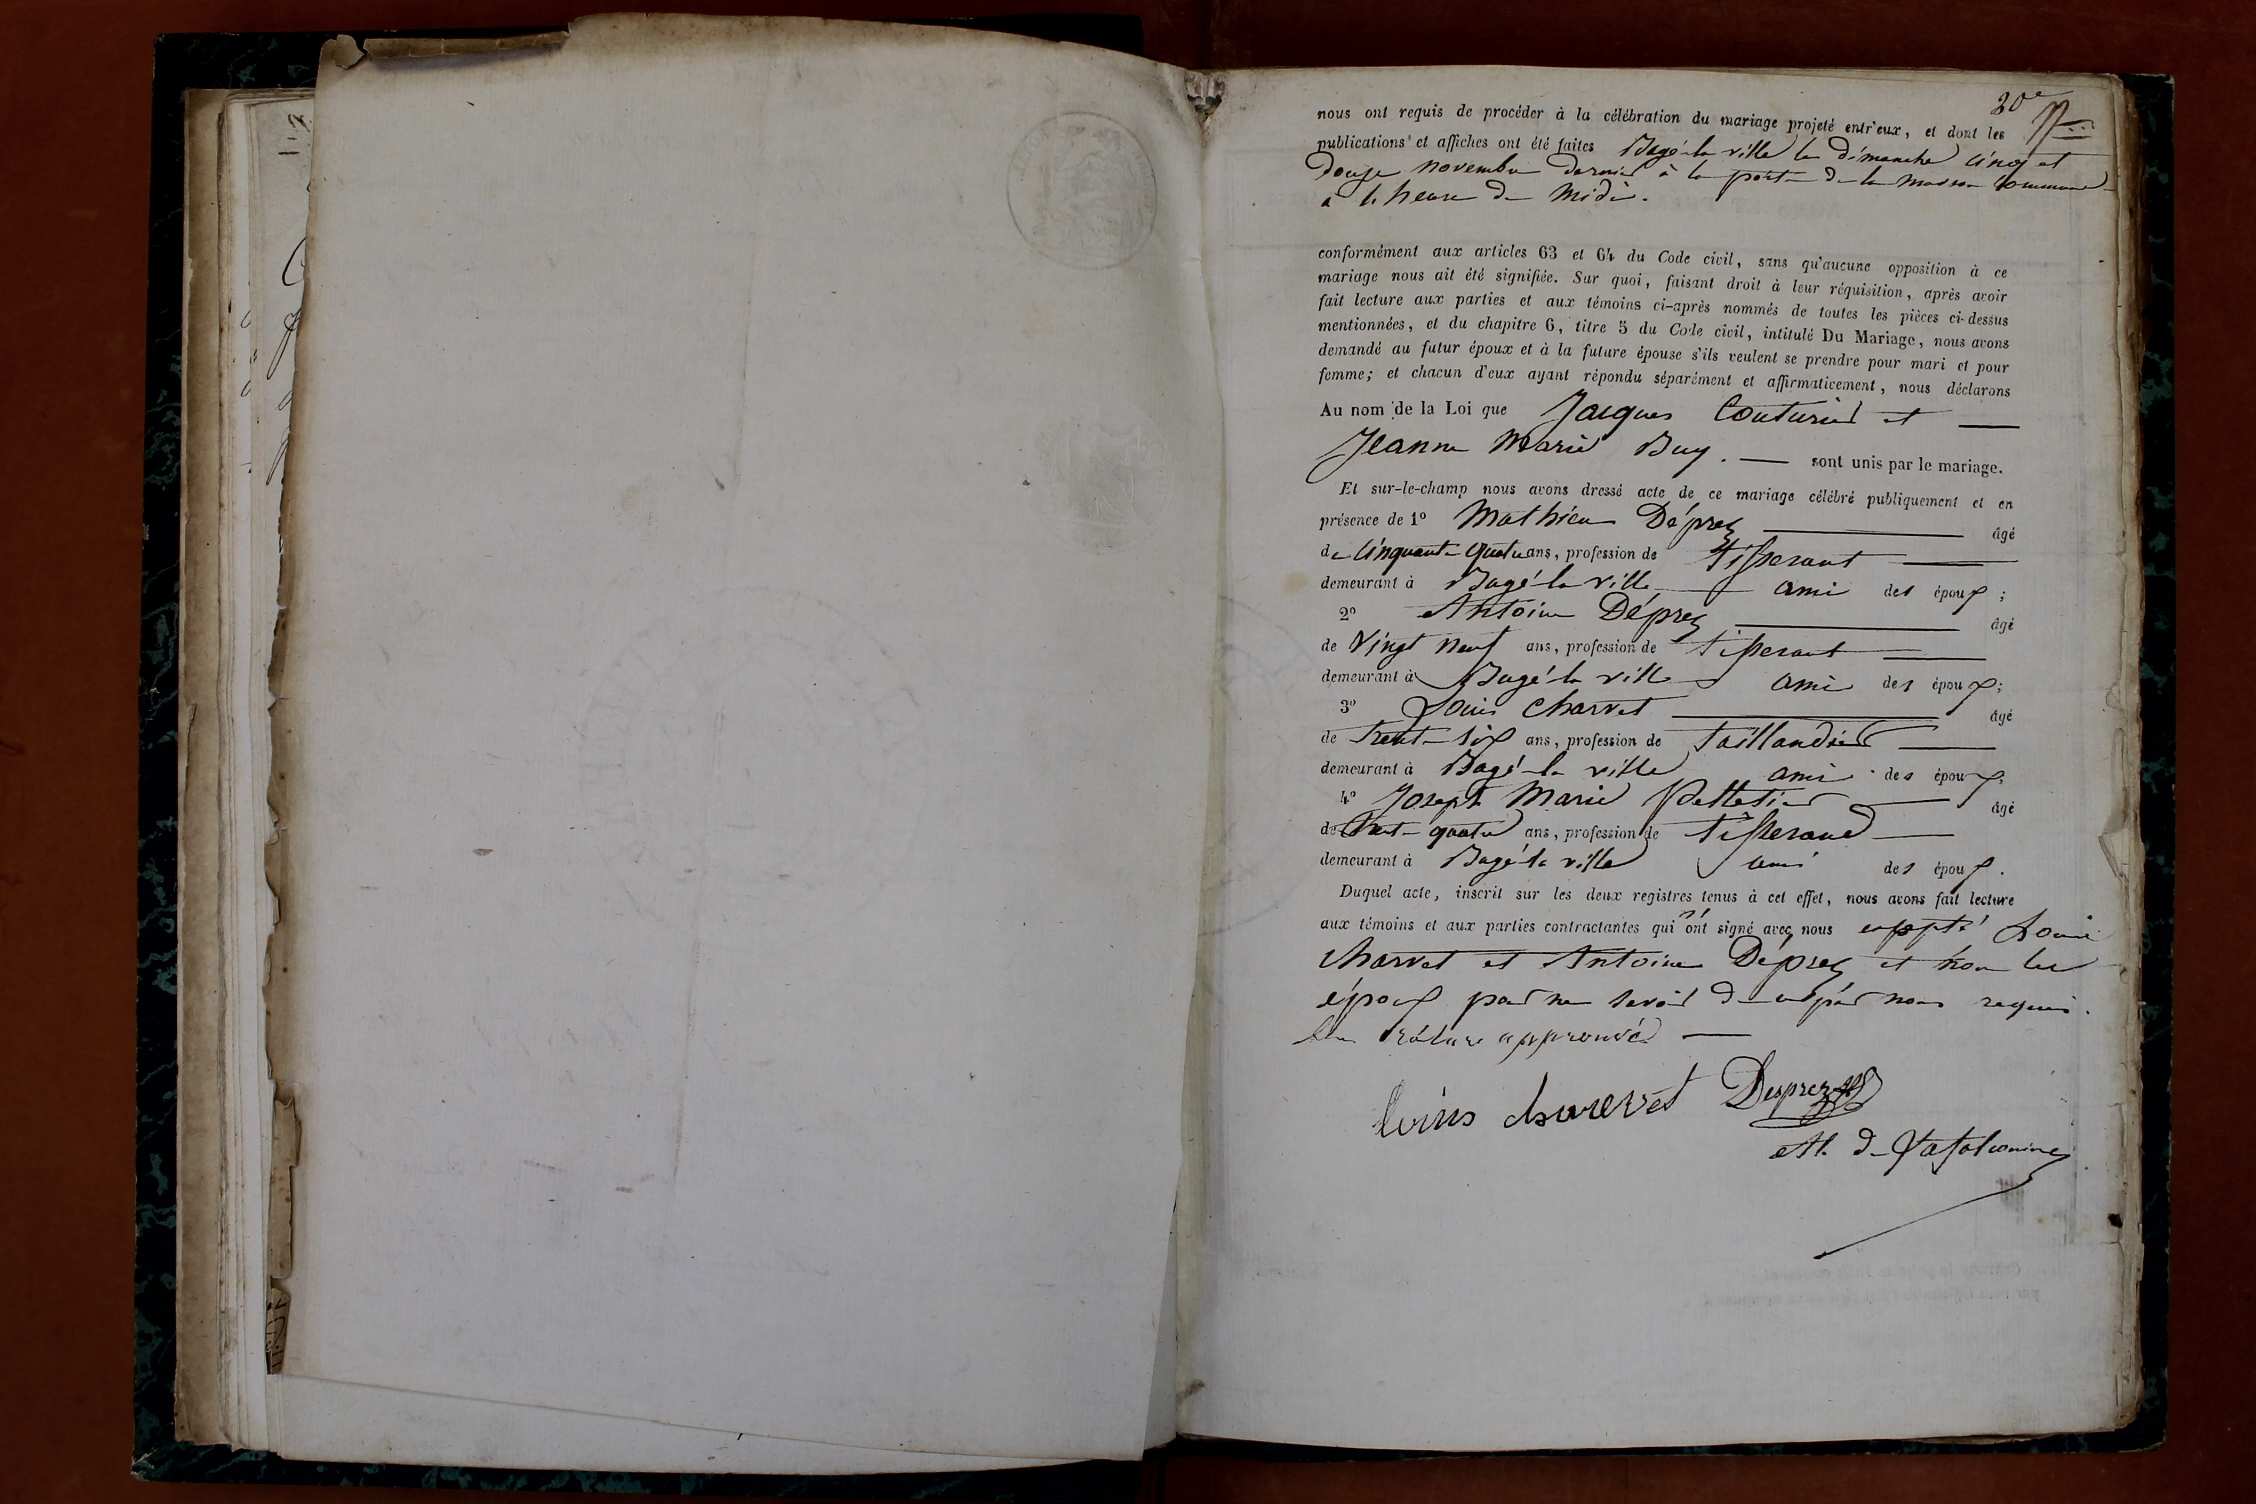 30e
nous ont requis de procéder à la célébration du mariage projeté entr'eux, et dont les
publications et affiches ont été faites Bagé-la ville le dimanche cinq et
Douze novembre dernier à la porte de la maison commune
a l'heure de Midi.
conformément aux articles 63 et 64 du Code civil, sans qu'aucune opposition à ce
mariage nous ait été signifiée. Sur quoi, faisant droit à leur réquisition, après avoir
fait lecture aux parties et aux témoins ci-après nommés de toutes les pièces ci-dessus
mentionnées, et du chapitre 6, titre 5 du Code civil, intitulé Du Mariage, nous avons
demandé au futur époux et à la future épouse s'ils veulent se prendre pour mari et pour
femme; et chacun d'eux ayant répondu séparément et affirmativement, nous déclarons
Au nom de la Loi que Jacques Couturier et
Jeanne Marie Buy. sont unis par le mariage.
Et sur-le-champ nous avons dressé acte de ce mariage célébré publiquement et en
présence de 1º Mathieu Déprez âgé
de Cinquante quatre ans, profession de tisserant
demeurant à Bagé la ville ami des époux;
2º Antoine Déprez âgé
de Vingt neuf ans, profession de tisserant
demeurant à Bagé la ville ami des époux;
3º Louis Charvet âgé
de trente-six ans, profession de taillandier
demeurant à Bagé-la ville ami des époux;
4º Joseph Marie Pelletier âgé
de trente-quatre ans, profession de tisserand
demeurant à Bagé la ville ami des époux.
Duquel acte, inscrit sur les deux registres tenus à cet effet, nous avons fait lecture
aux témoins et aux parties contractantes qui n'ont signé avec nous excepté Louis
Charvet et Antoine Déprez et non les
époux pour ne savoir de ce par nous requis.
rature approuvée
louis charvet Desprez